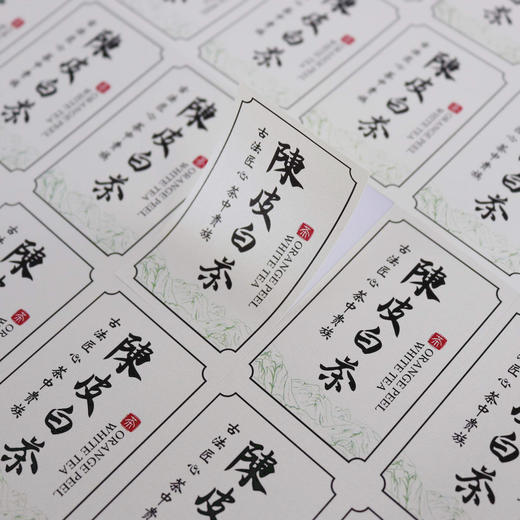 陳皮白茶
茶
ORANGE PEEL
WHITE TEA
古法匠心 茶中貴族